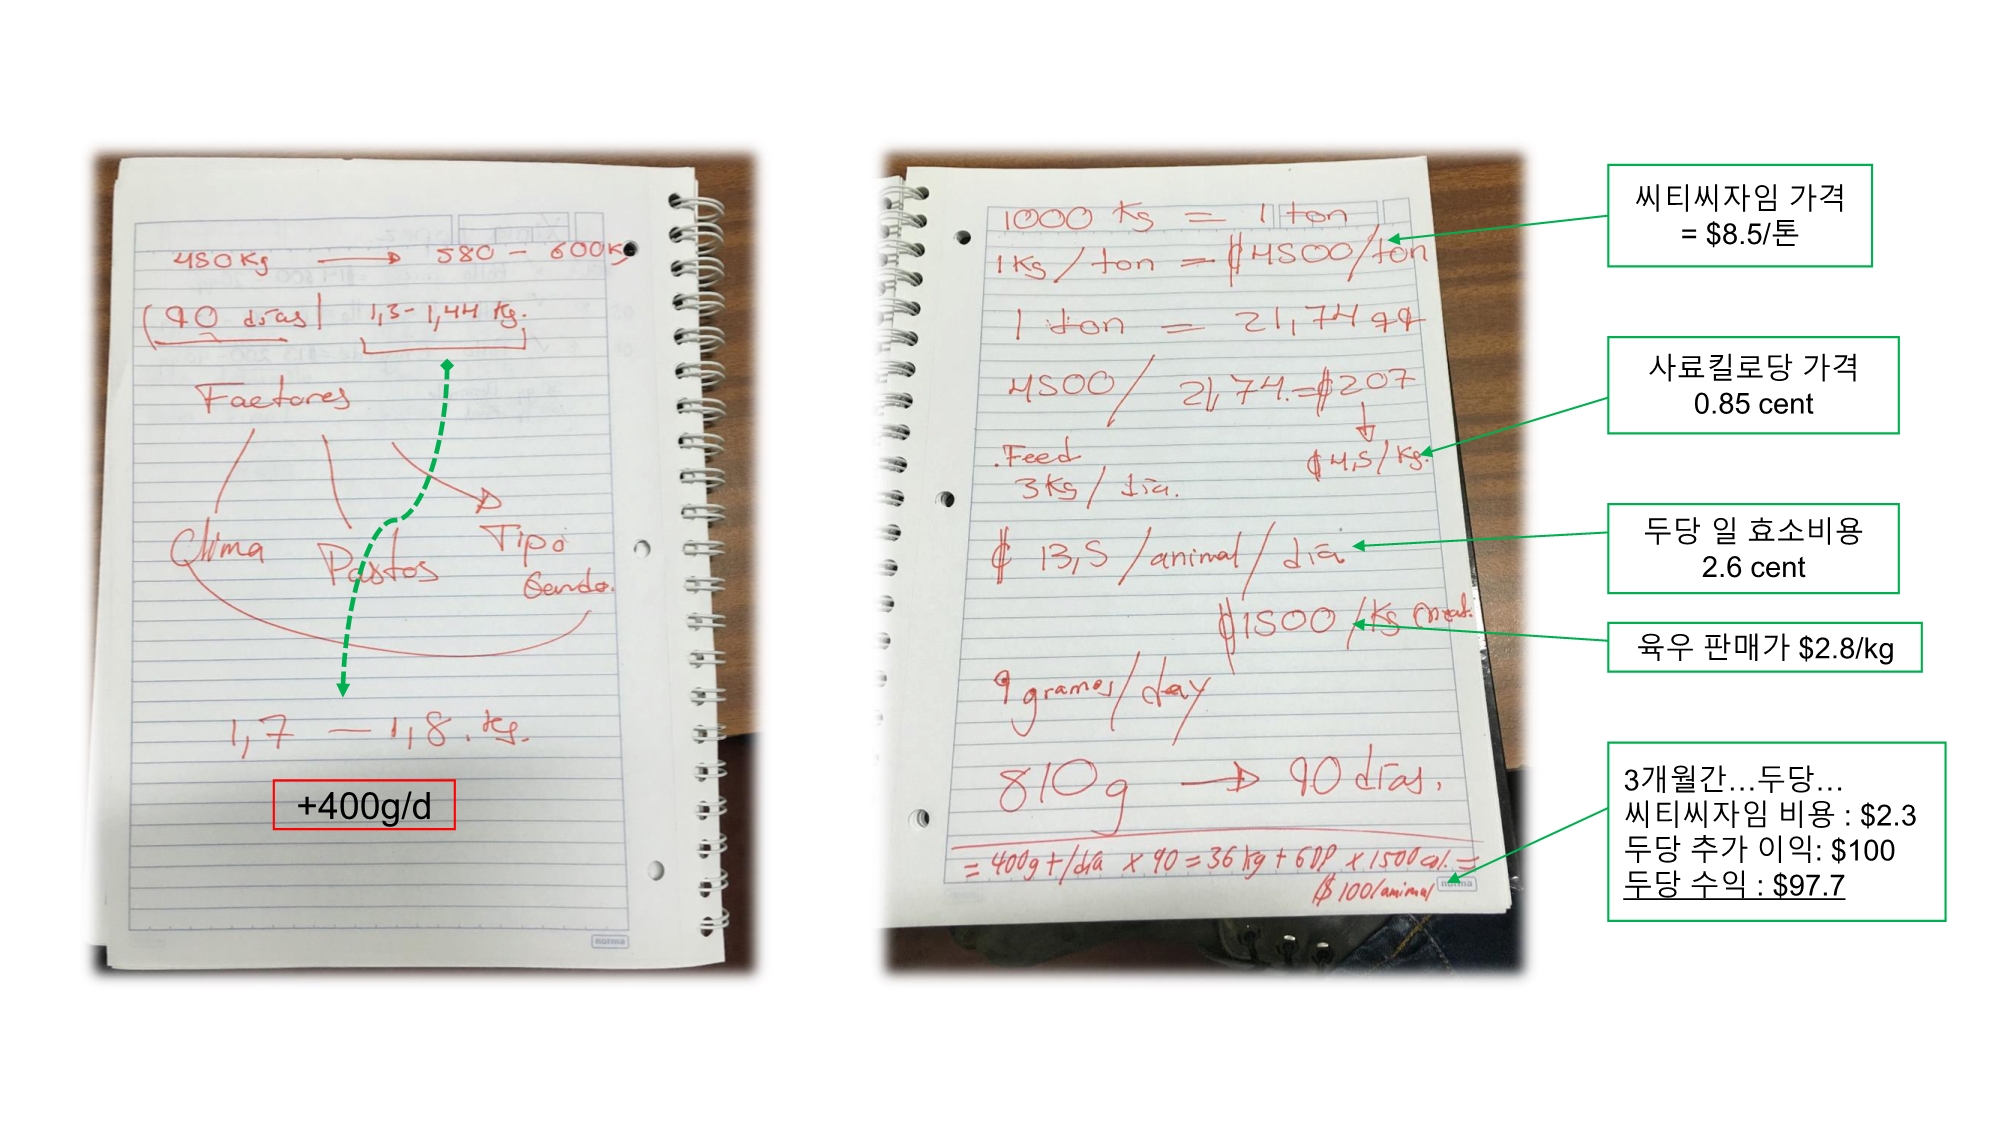 450Kg → 580 - 600K
(90 días) 1,3-1,44 Kg.
Factores
Clima Pastos Tipo
Ganado.
1,7 - 1,8. Kg.
+400g/d
norma
1000 Kg = 1 ton
1Kg / ton = ₡4500/ton
1 ton = 21,74 qq
4500/ 21,74.=₡207
↓
₡4,5/Kg.
.Feed
3Kg / día.
₡ 13,5 /animal/ día
₡1500 /Kg meat.
9 grames/day
810g → 90 días.
= 400g+/día x 90 = 36 kg + GDP x 1500 col. =
$ 100/animal
norma
씨티씨자임 가격
= $8.5/톤
사료킬로당 가격
0.85 cent
두당 일 효소비용
2.6 cent
육우 판매가 $2.8/kg
3개월간…두당…
씨티씨자임 비용 : $2.3
두당 추가 이익: $100
두당 수익 : $97.7